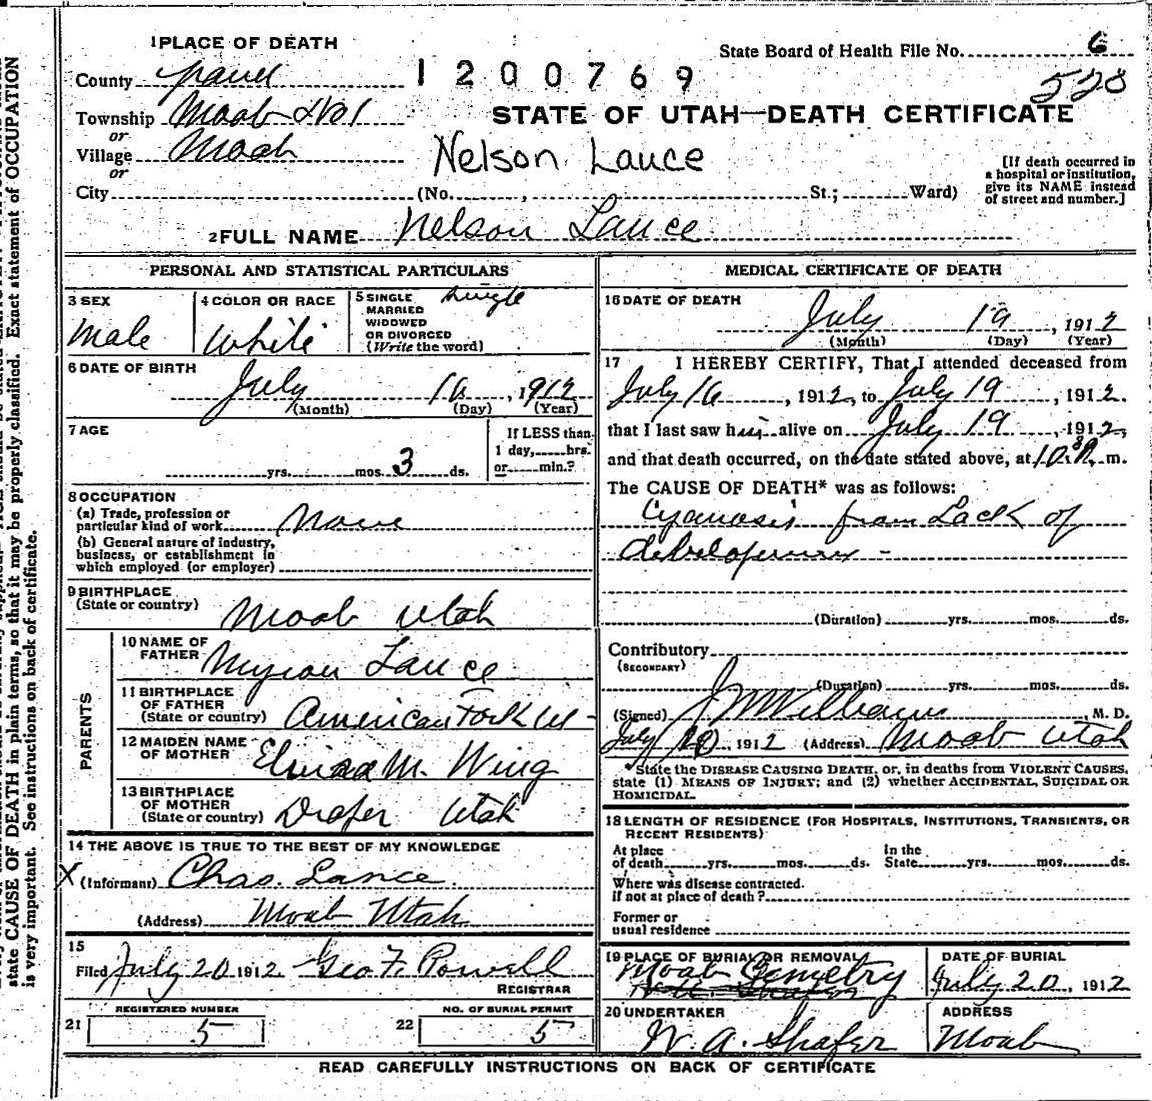 state CAUSE OF DEATH in plain terms, so that it may be properly classified. Exact statement of OCCUPATION
is very important. See instructions on back of certificate.
1 PLACE OF DEATH
State Board of Health File No. 6
528
County Grand
1200769
Township Moab No 1
or
STATE OF UTAH—DEATH CERTIFICATE
Village Moab
or
Nelson Lance
[If death occurred in a hospital or institution, give its NAME instead of street and number.]
City (No. , St.; Ward)
2 FULL NAME Nelson Lance
PERSONAL AND STATISTICAL PARTICULARS
3 SEX
Male
4 COLOR OR RACE
White
5 SINGLE
MARRIED
WIDOWED
OR DIVORCED
(Write the word)
Single
6 DATE OF BIRTH
July 16, 1912
(Month) (Day) (Year)
7 AGE
yrs. mos. 3 ds.
If LESS than
1 day, hrs.
or min.?
8 OCCUPATION
(a) Trade, profession or
particular kind of work None
(b) General nature of industry,
business, or establishment in
which employed (or employer)
9 BIRTHPLACE
(State or country) Moab Utah
PARENTS
10 NAME OF
FATHER Myron Lance
11 BIRTHPLACE
OF FATHER
(State or country) American Fork Ut-
12 MAIDEN NAME
OF MOTHER M. Wing
13 BIRTHPLACE
OF MOTHER
(State or country) Draper Utah
14 THE ABOVE IS TRUE TO THE BEST OF MY KNOWLEDGE
X (Informant) Chas. Lance
(Address) Moab Utah
15
Filed July 20 1912 Geo F. Powell
REGISTRAR
REGISTERED NUMBER
21 5
NO. OF BURIAL PERMIT
22 5
MEDICAL CERTIFICATE OF DEATH
16 DATE OF DEATH
July 19, 1912
(Month) (Day) (Year)
17 I HEREBY CERTIFY, That I attended deceased from
July 16, 1912, to July 19, 1912.
that I last saw him alive on July 19, 1912,
and that death occurred, on the date stated above, at 10 P. m.
The CAUSE OF DEATH* was as follows:
Cyanosis from Lack of
development -
(Duration) yrs. mos. ds.
Contributory
(SECONDARY)
(Duration) yrs. mos. ds.
(Signed) J W Williams M. D.
July 20, 1912 (Address) Moab Utah
*State the DISEASE CAUSING DEATH, or, in deaths from VIOLENT CAUSES,
state (1) MEANS OF INJURY; and (2) whether ACCIDENTAL, SUICIDAL OR
HOMICIDAL.
18 LENGTH OF RESIDENCE (FOR HOSPITALS, INSTITUTIONS, TRANSIENTS, OR
RECENT RESIDENTS)
At place
of death yrs. mos. ds.
In the
State yrs. mos. ds.
Where was disease contracted.
if not at place of death?
Former or
usual residence
19 PLACE OF BURIAL OR REMOVAL
Moab Cemetry
DATE OF BURIAL
July 20, 1912
20 UNDERTAKER
W. A. Shafer
ADDRESS
Moab
READ CAREFULLY INSTRUCTIONS ON BACK OF CERTIFICATE